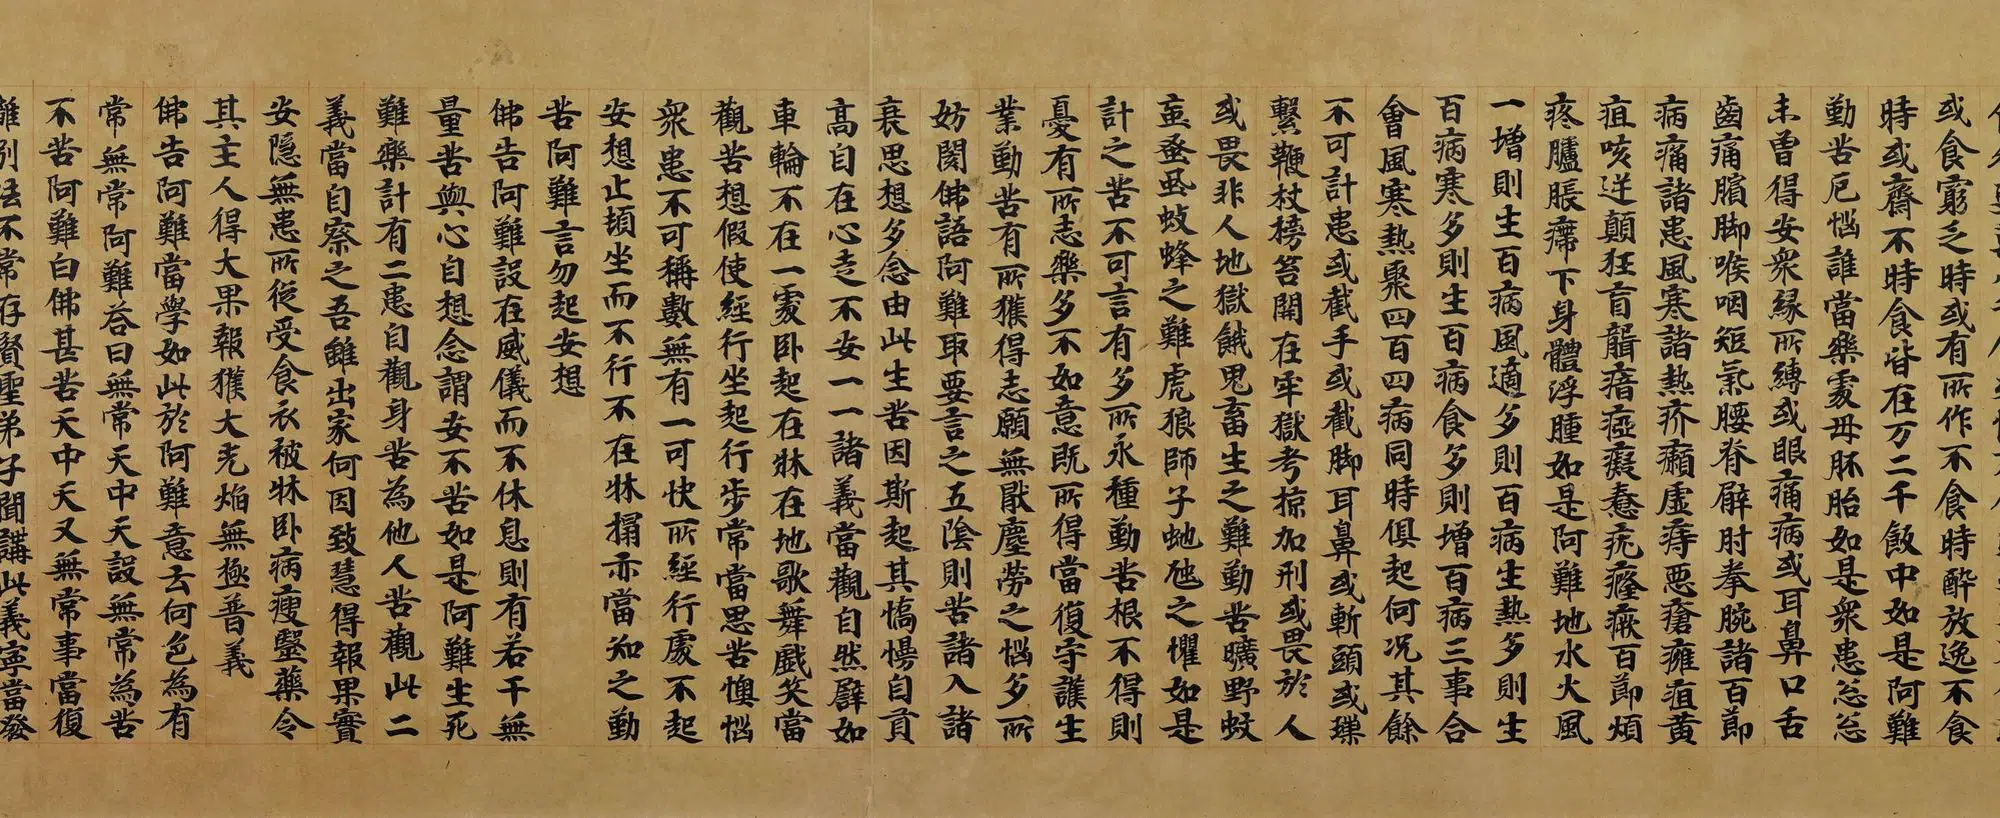 或食窮乏時或有所作不食時醉放逸不食
時或齋不時食皆在万二千飯中如是阿難
勤苦厄惱誰當樂處母胚胎如是衆患忩忩
未曾得安衆緣所縛或眼痛病或耳鼻口舌
齒痛臏脚喉咽短氣腰脊臂肘拳腕諸百節
病痛諸患風寒諸熱疥癩虛痔惡瘡癰疽黃
疽咳逆顛狂盲聾瘖瘂癡惷疣癃瘚百節煩
疼臚脹㿃下身體浮腫如是阿難地水火風
一增則生百病風適多則百病生熱多則生
百病寒多則生百病食多則增百病三事合
會風寒熱聚四百四病同時俱起何況其餘
不可計患或截手或截脚耳鼻或斬頭或㩡
繫鞭杖榜笞閉在牢獄考掠加刑或畏於人
或畏非人地獄餓鬼畜生之難勤苦曠野蚊
䖟蚤虱蛟蜂之難虎狼師子虵虺之懼如是
計之苦不可言有多所永種勤苦根不得則
憂有所志樂多不如意既所得當復守護生
業勤苦有所獲得志願無猒塵勞之惱多所
妨閡佛語阿難取要言之五陰則苦諸入諸
衰思想多念由此生苦因斯起其憍慢自貢
高自在心走不安一一諸義當觀自然辟如
車輪不在一處卧起在牀在地歌舞戲笑當
觀苦想假使經行坐起行步常當思苦懊惱
衆患不可稱數無有一可快所經行處不起
安想止頓坐而不行不在牀搨亦當知之勤
苦阿難言勿起安想
佛告阿難設在威儀而不休息則有若干無
量苦與心自想念謂安不苦如是阿難生死
難樂計有二患自觀身苦為他人苦觀此二
義當自察之吾雖出家何因致慧得報果實
安隱無患所從受食衣被牀卧病瘦毉藥令
其主人得大果報獲大光焰無極普義
佛告阿難當學如此於阿難意去何色為有
常無常阿難荅曰無常天中天設無常為苦
不苦阿難白佛甚苦天中天又無常事當復
離別法不常存賢聖弟子聞講此義寧當發